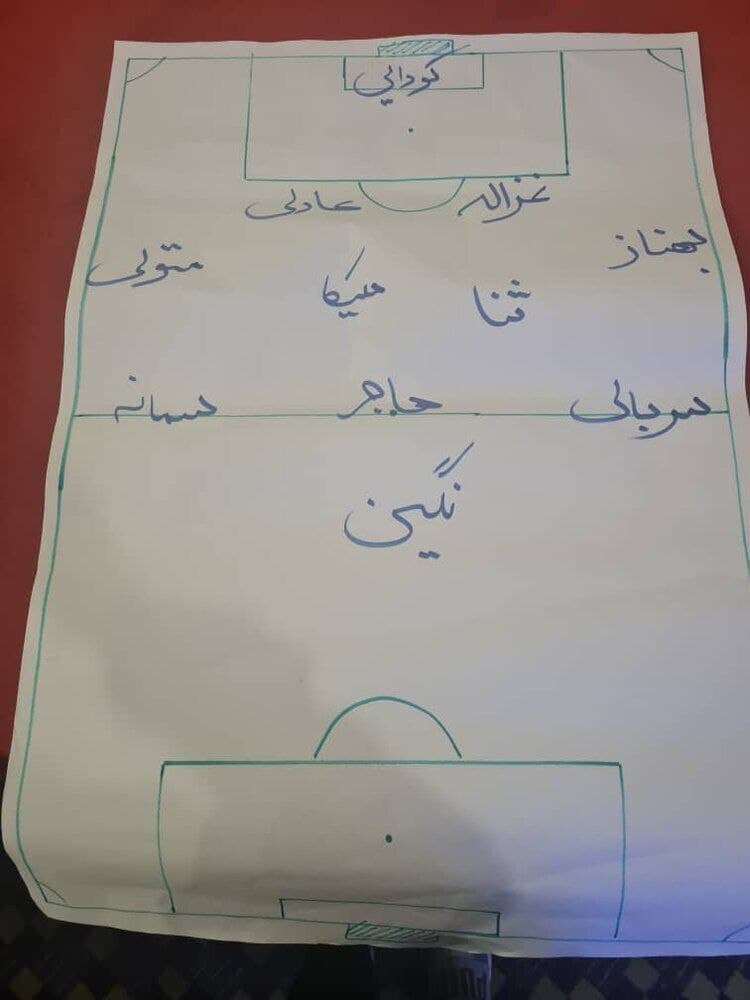 کودالی
غزاله
عادلی
بهناز
متولی
ثنا
ملیکا
سربالی
هاجر
سمانه
نگین